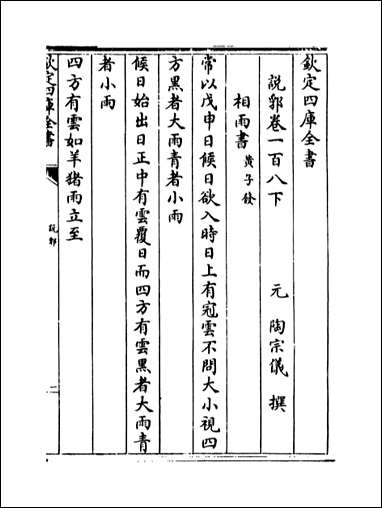 欽定四庫全書
說郛卷一百八下
元 陶宗儀 撰
相雨書 黃子發
常以戊申日候日欲入時日上有冠雲不問大小視四
方黑者大雨青者小雨
候日始出日正中有雲覆日而四方有雲黑者大雨青
者小雨
四方有雲如羊豬雨立至
欽定四庫全書
說郛